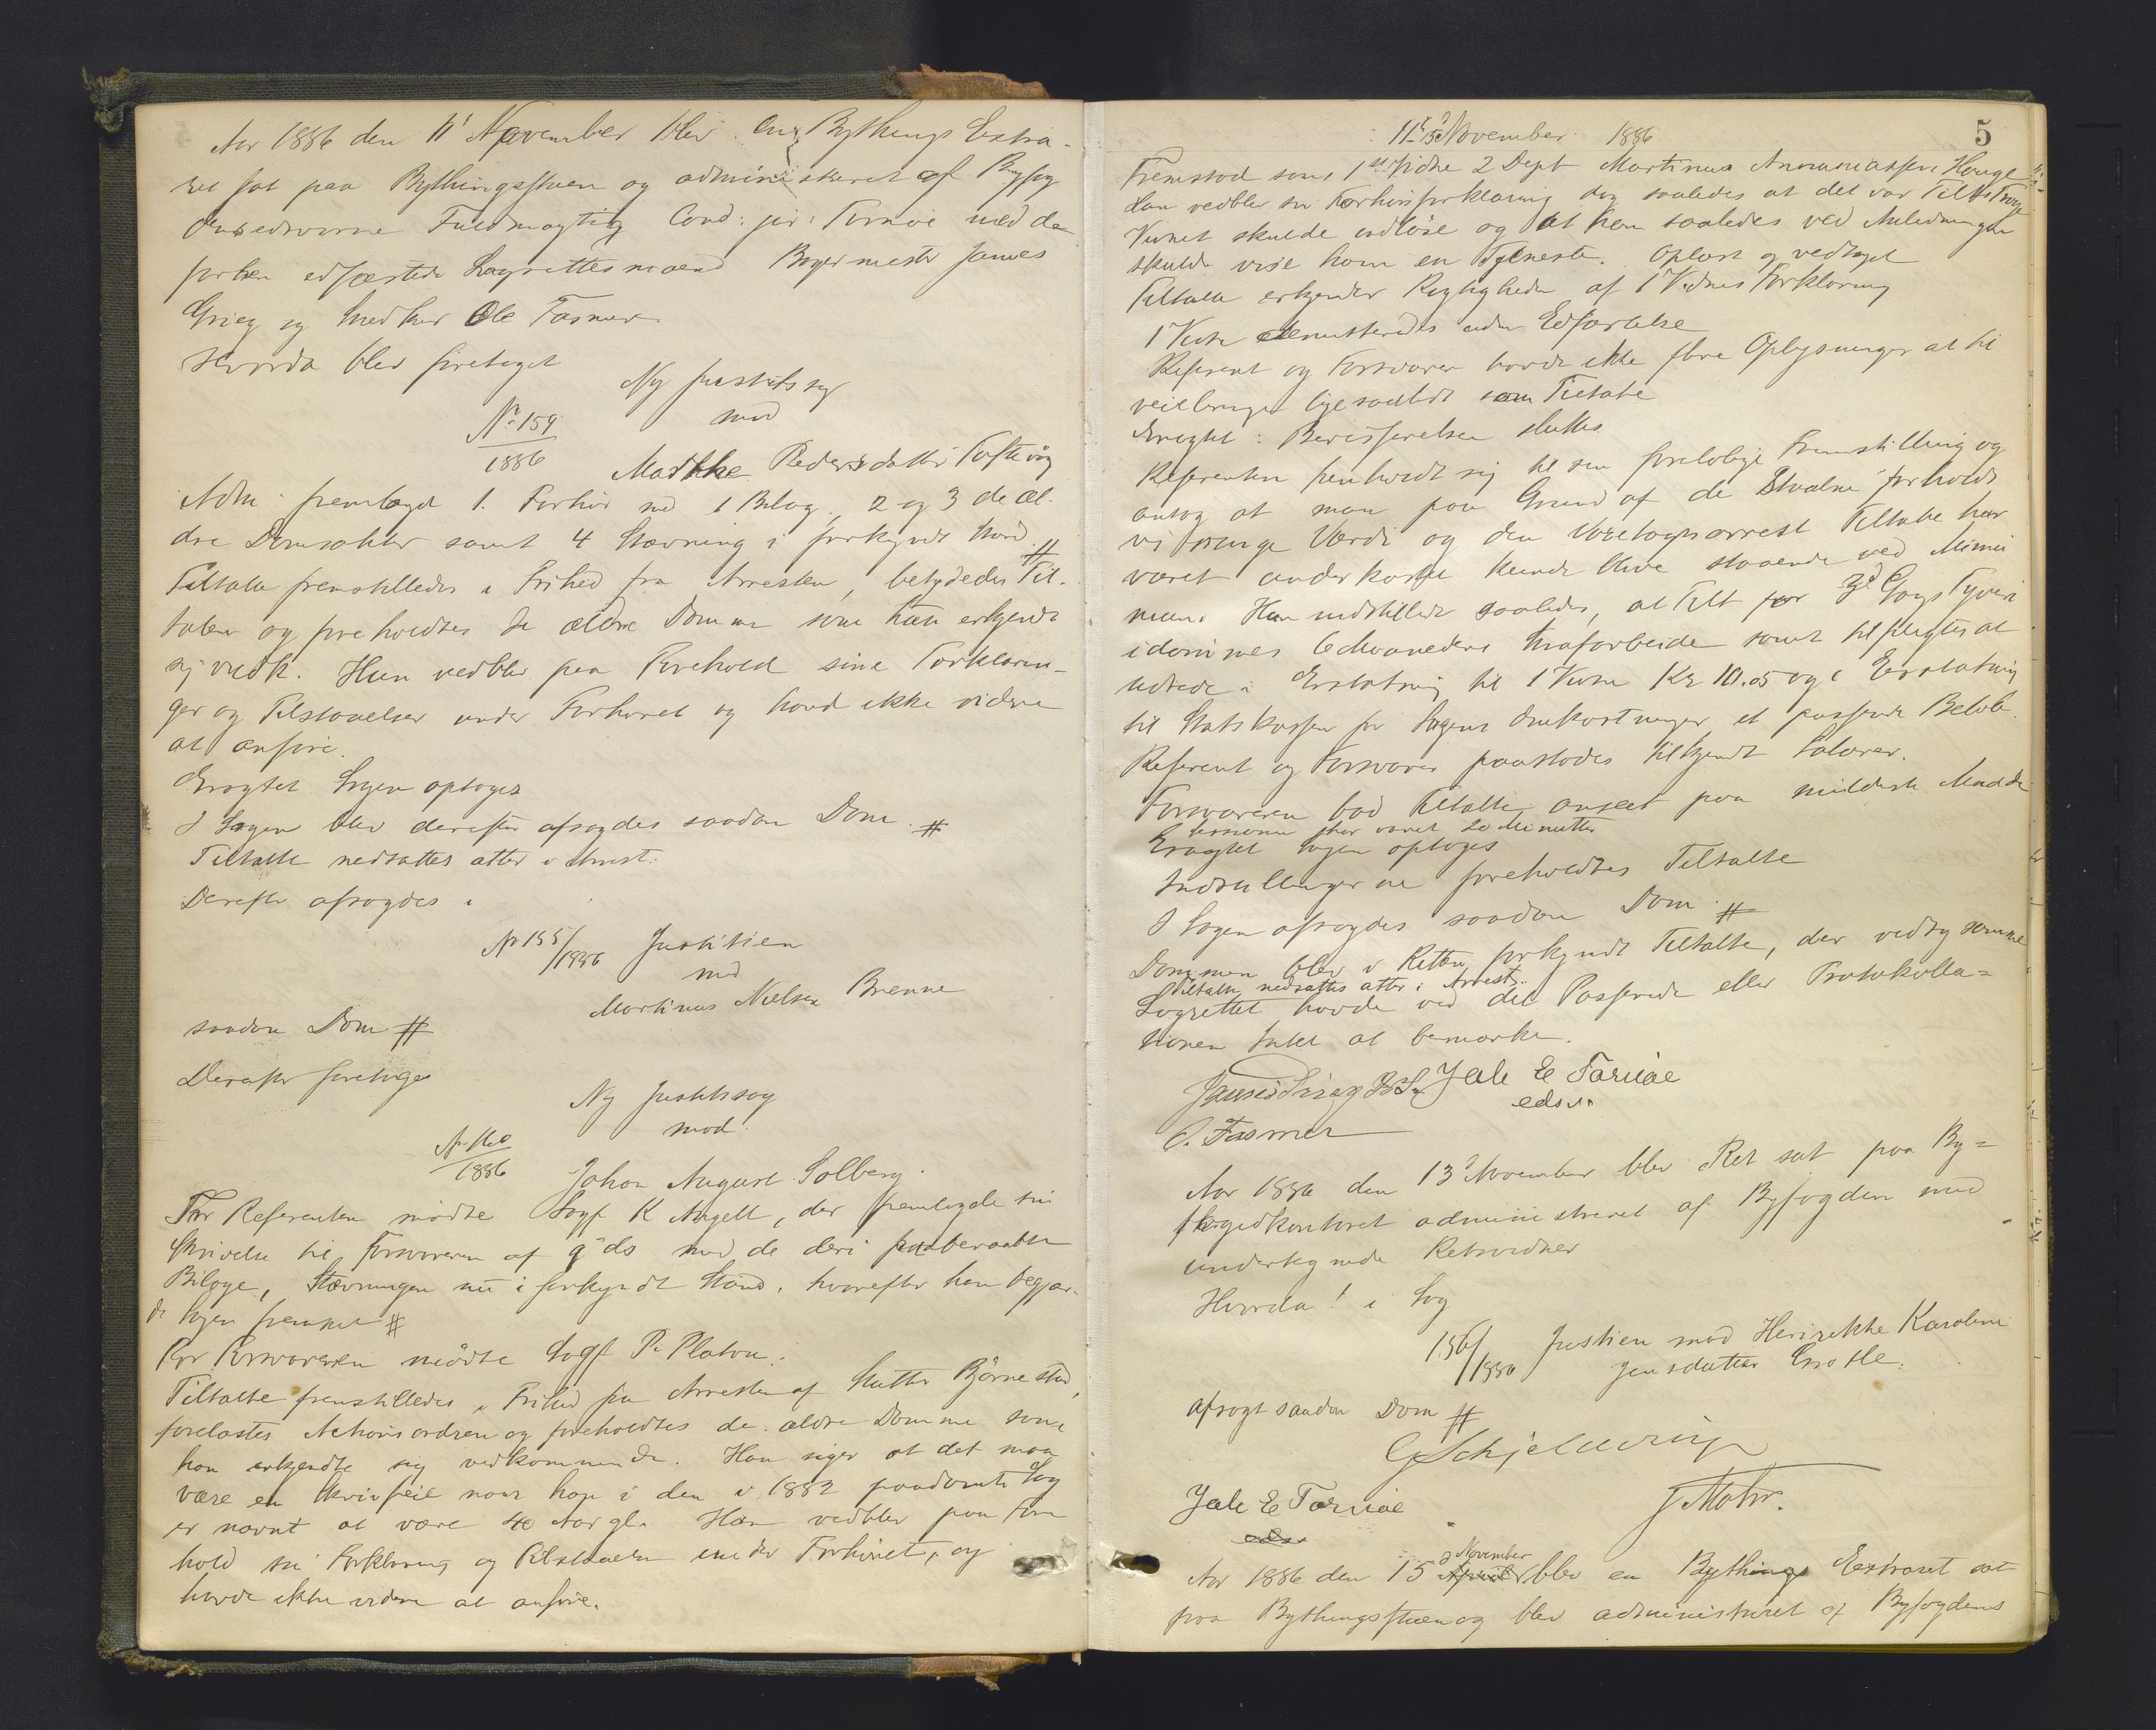 Aar 1886 den 11' November blev en Bythings Extra-
ret sat paa Bythingsstuen og administreret af Byfog
dens edsvorne Fuldmægtig Cand: jur: Tornöe med de
for ham edfæstede Lagrettesmænd Bogermester James
Grieg og Snedker Ole Fasmer.
Hvorda blev foretaget
Ny Justitssag
No 159
1886
mod
Marthe Pedersdatter Toftevåg
Adm: fremlagde 1. Forhör med 1 Bilag. 2 og 3 de æl-
dre Domsakter samt 4 Stævning i forkyndt Stand #
Tiltalte fremstilledes i Frihed fra Arresten, betydedes Til-
talen og foreholdtes de ældre Domme som hun erkjendte
sig vedk. Hun vedblev paa Forehold sine Forklarin-
ger og Tilstaaelser under Forhöret og havde ikke videre
at anföre.
Eragtet Sagen optages
I Sagen blev derefter afsagdes saadan Dom #
Tiltalte nedsattes atter i Arrest.
Derefter afsagdes i
No 155/1886 Justitien
mod
Martinus Nielsen Brenne
saadan Dom #
Derefter foretoges
Ny Justitssag
No 160
1886
mod.
Johan August Solberg.
For Referenten mödte Sagf K Angell, der fremlagde sin
Skrivelse til Forsvareren af 9 ds med de deri paaberaabte
Bilage, Stævningen nu i forkyndt Stand, hvorefter han begjær-
de Sagen fremmet #
For Forsvareren mödte Sagf P. Platou.
Tiltalte fremstilledes i Frihed fra Arresten af Slutter Björnestad,
forelæstes Actionsordren og foreholdtes de ældre Domme som
han erkjendte sig vedkommende. Han siger at det maa
være en Skrivfeil naar han i den i 1882 paadömte Sag
er nævnt at være 40 Aar gl. Han vedblev paa Fore
hold sin Forklaring og Tilstaaelse under Forhöret, og
havde ikke videre at anföre.
11-13 November 1886
5
Fremstod som 1ste Vidne 2 Dept Martinus Annaniassen Hauge
Han vedblev sin Forhörsforklaring dog saaledes at det var Tilts Tröje
Vidnet skulde indlöse og at han saaledes ved Anledningen
skulde vise ham en Tjeneste. Oplæst og vedtaget
Tiltalte erkjender Rigtigheden af 1 Vidnes Forklaring
1 Vidne demitteredes uden Edfæstelse
Referent og Forsvarer havde ikke flere Oplysninger at til
veiebringe ligesaalidt som Tiltalte
Eragtet: Bevisförelsen sluttes
Referenten henholdt sig til sin forelöbige Fremstilling og
antog at man paa Grund af de Stjaalne forholds
vis ringe Værdi og den Varetægtsarrest Tiltalte har
været underkastet kunde blive staaende ved Mini
mum. Han indstillede saaledes, at Tilt for 3d Gangs Tyveri
idömmes 6 Maaneders Strafarbeide samt tilpligtes at
udrede i Erstatning til 1 Vidne Kr 10.05 og i Erstatning
til Statskassen for Sagens Omkostninger et passende Belöb.
Referent og Forsvarer paastodes tilkjendt Salærer.
Forsvareren bad Tiltalte anseet paa mildeste Maade
har varet 20 Minutter
Eragtet Sagen optages
Indstillingerne foreholdtes Tiltalte
I Sagen afsagdes saadan Dom #
Dommen blev i Retten forkyndt Tiltalte, der vedtog samme
Tiltalte nedsattes atter i Arrest.
Lagrettet havde ved det Passerede eller Protokolla=
tionen Intet at bemærke.
James Grieg Yale E Tornöe
edsv.
O. Fasmer
Aar 1886 den 13' November blev Ret sat paa By=
fogedkontoret administreret af Byfogden med
undertegnede Retsvidner
Hvorda! i Sag
156/1886 Justien mod Henrikke Karoline
Jensdatter Grotle.
afsagt saadan Dom #
G Schjelderup
Yale E Tornöe
J Mohr.
edsv.
November
Aar 1886 den 15 April blev en Bythings Exstraret sat
paa Bythingsstuen og blev administreret af Byfogdens